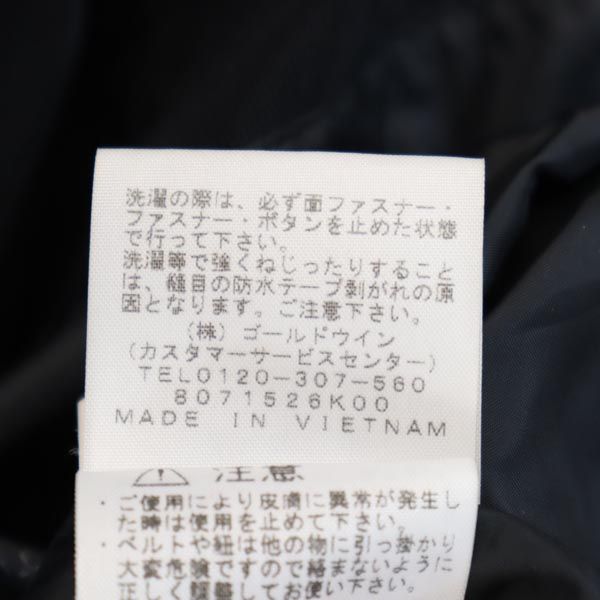 洗濯の際は、必ず面ファスナー・
ファスナー・ボタンを止めた状態
で行って下さい。
洗濯等で強くねじったりすること
は、縫目の防水テープ剥がれの原
因となります。ご注意下さい。
(株)ゴールドウイン
(カスタマーサービスセンター)
TEL0120-307-560
8071526K00
MADE IN VIETNAM
注意
・ご使用により皮膚に異常が発生し
た時は使用を止めて下さい。
・ベルトや紐は他の物に引っ掛かり
大変危険ですので絡まないように
正しく調整してお使い下さい。